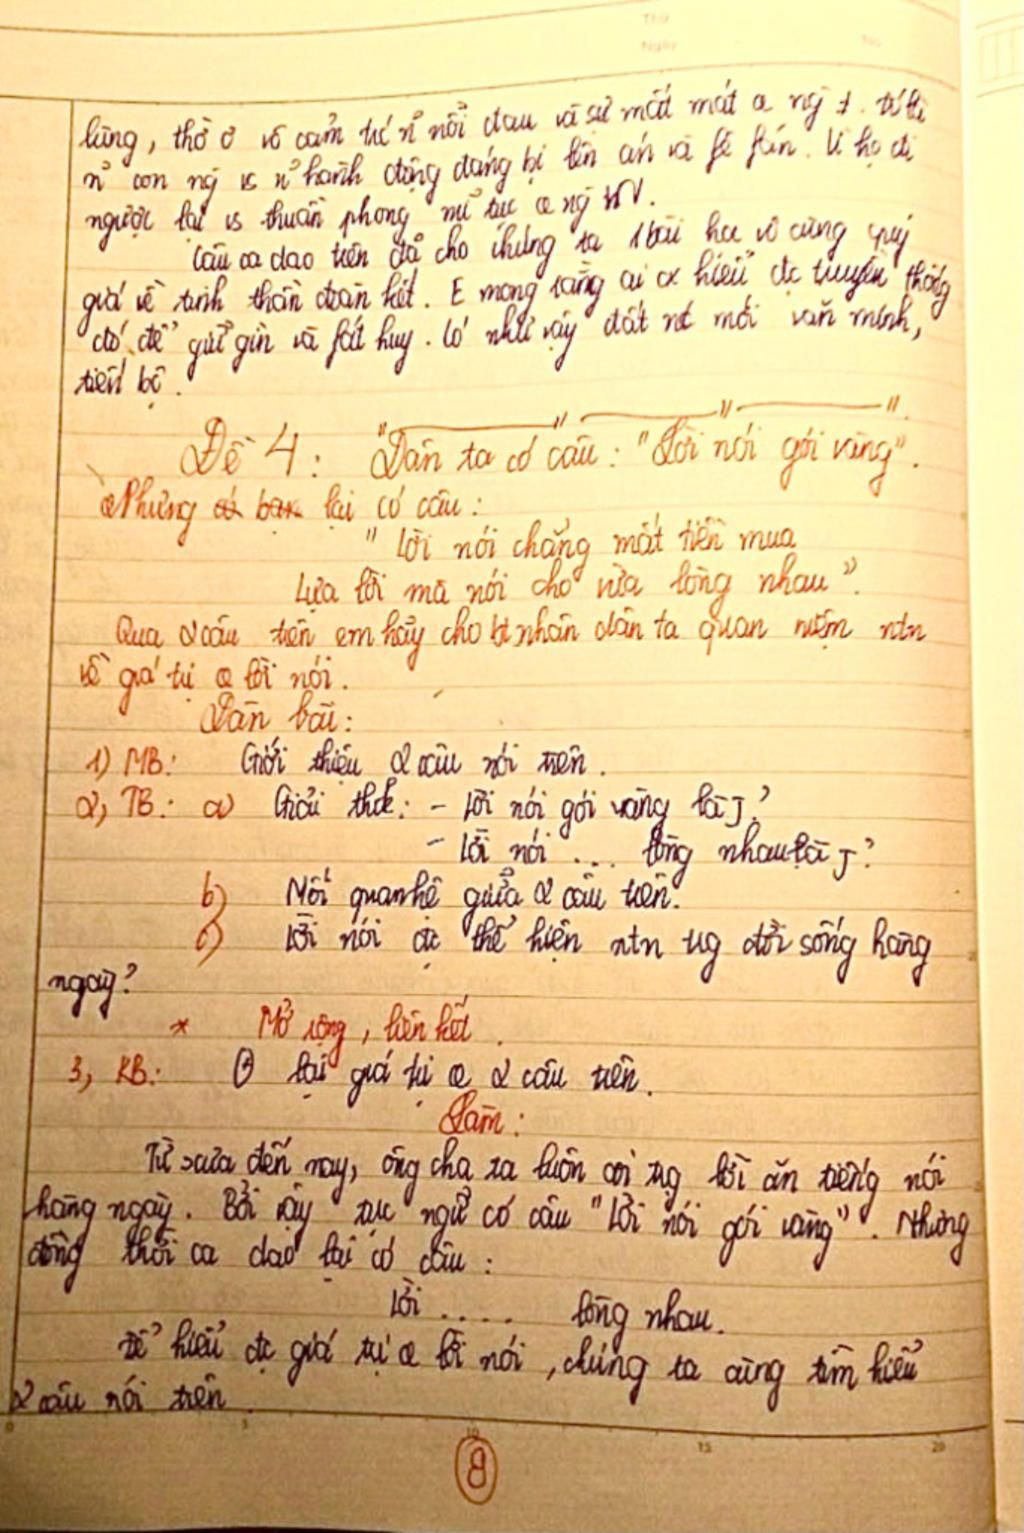 Thứ
Ngày No
lùng, thờ ơ vô cảm trc n~ nỗi đau và sự mất mát ng
n~ con ng vs n~ hành động đáng bị lên án và fê fán. Vì họ đi
ngược lại vs thuần phong mĩ tục ng VN.
Câu ca dao trên đã cho chúng ta 1 bài học vô cùng quý
giá về tinh thần đoàn kết. E mong rằng ai cx hiểu đc truyền thống
đó để giữ gìn và fát huy. Có như vậy đất nc mới văn minh,
tiến bộ.
Đề 4: "Dân ta có câu: "Lời nói gói vàng".
Nhưng lại có câu:
" Lời nói chẳng mất tiền mua
Lựa lời mà nói cho vừa lòng nhau".
Qua 2 câu trên em hãy cho bt nhân dân ta quan niệm ntn
về giá trị lời nói.
Dàn bài:
1) MB: Giới thiệu 2 câu nói trên.
2, TB: a) Giải thík: - Lời nói gói vàng là J?
- Lời nói .... lòng nhau là J?
b) Mối quan hệ giữa 2 câu trên.
c) Lời nói đc thể hiện ntn trg đời sống hàng
ngày?
* Mở rộng, liên kết.
3, KB: lại giá trị 2 câu trên.
Làm:
Từ xưa đến nay, ông cha ta luôn coi trg lời ăn tiếng nói
hàng ngày. Bởi vậy tục ngữ có câu "Lời nói gói vàng". Nhưng
đồng thời ca dao lại có câu:
Lời ..... lòng nhau.
Để hiểu đc giá trị lời nói, chúng ta cùng tìm hiểu
2 câu nói trên.
0 5 10 15 20
8